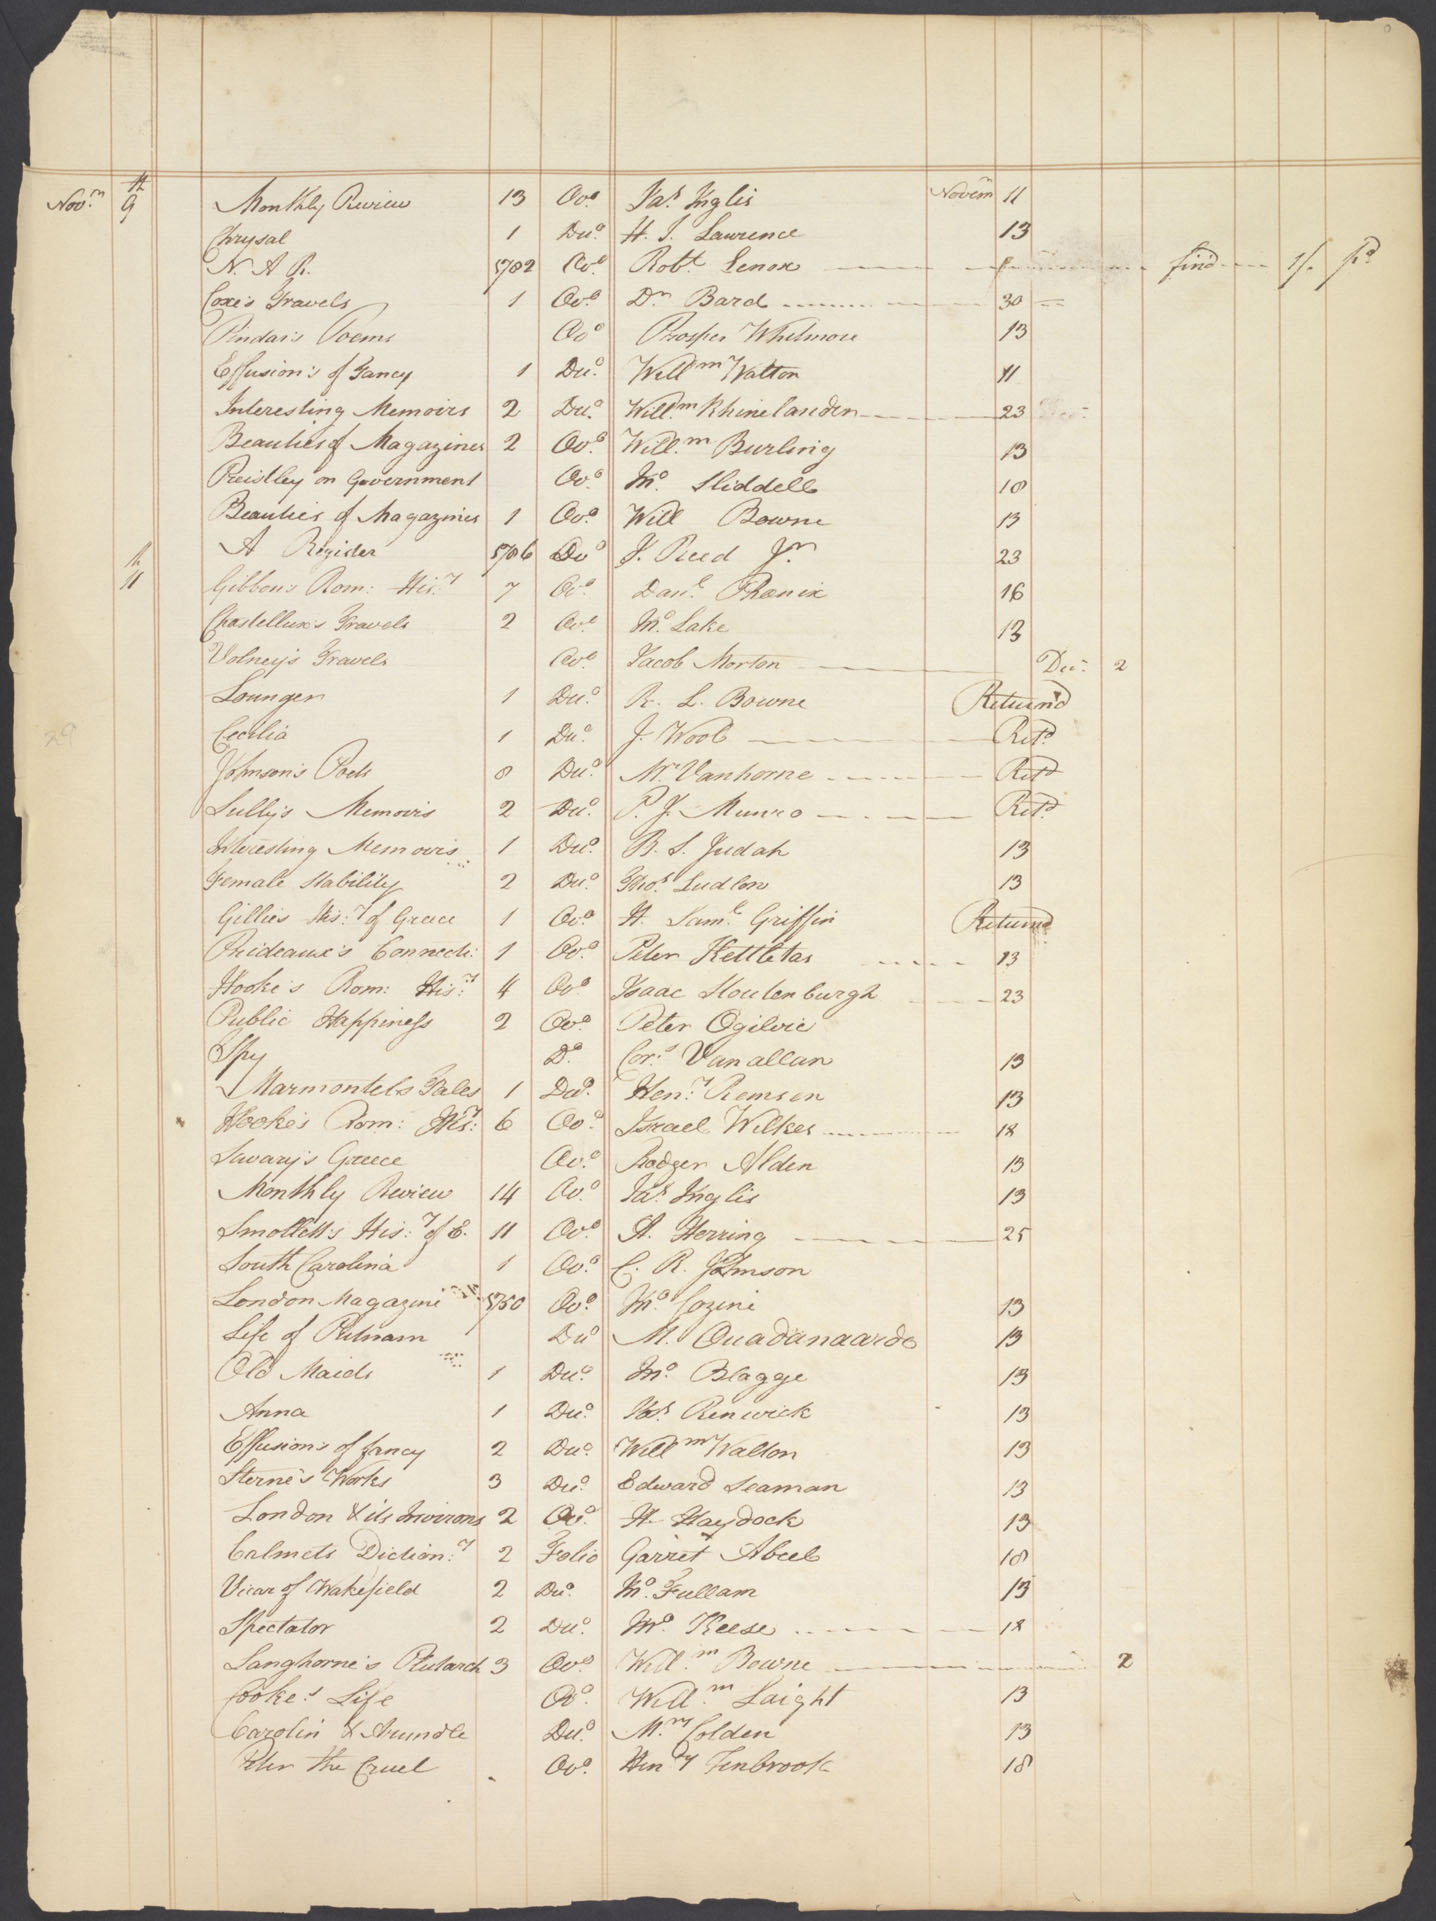 Novr. 9 Monthly Review 13 Ovo. Jas. Inglis Novem 11
Chrysal 1 Duo. H. I. Lawrence 13
N. A R. 1782 Ovo. Robt. Lenox fin'd 1/. pd
Coxe's Travels 1 Ovo. Dr. Bard 30
Pindar's Poems Ovo Prosper Whetmore 13
Effusion's of Fancy 1 Duo. Willm Walton 11
Interesting Memoirs 2 Duo. Willm. Rhinelander 23
Beauties of Magazines 2 Ovo. Willm. Burling 13
Preistley on Government Ovo. Jno. Sliddell 18
Beauties of Magazines 1 Ovo. Will Bowne 13
A Register 1786 Do J. Reed Jr. 23
11 Gibbon's Rom: His:y 7 Ovo. Danl. Phoenix 16
Chastellux's Travels 2 Ovo. Jno. Lake 13
Volney's Travels Ovo. Jacob Morton Decr. 2
Lounger 1 Duo. R. L. Bowne Returnd
Cecilia 1 Duo. J. Wool Retd.
Johnson's Poets 8 Duo. Mr. Vanhorne Retd
Sully's Memoirs 2 Duo. P. J. Munro Retd.
Interesting Memoirs 1 Duo. B. S. Judah 13
Female Stability 2 Duo. Thos. Ludlow 13
Gillies His:y of Greece 1 Ovo. H. Saml. Griffin Returnd
Prideaux's Connect: 1 Ovo. Peter Kettletas 13
Hooke's Rom: His:y 4 Ovo Isaac Stoutenburgh 23
Public Happiness 2 Ovo. Peter Ogilvie
Spy Do. Cors. Vanallan 13
Marmontel's Tales 1 Duo. Heny. Remsen 13
Hooke's Rom: His:y 6 Ovo. Israel Wilkes 18
Savary's Greece Ovo. Rodger Alden 13
Monthly Review 14 Ovo. Jas. Inglis 13
Smollett's His:y of E. 11 Ovo A. Herring 25
South Carolina 1 Ovo. C. R. Johnson
London Magazine 1750 Ovo. Jno. Cozine 13
Life of Putnam Duo M. Ouadanaardo 13
Old Maids 1 Duo. Jno. Blagge 13
Anna 1 Duo. Jas. Renwick 13
Effusion's of fancy 2 Duo. Willm Walton 13
Sterne's Works 3 Duo. Edward Seaman 13
London & its Invirons 2 Ovo. H. Haydock 13
Calmets Diction:y 2 Folio Garret Abeel 18
Vicar of Wakefield 2 Duo. Jno. Fullam 13
Spectator 2 Duo. Jno. Keese 18
Langhorne's Plutarch 3 Ovo. Willm. Bowne 2
Cooke's Life Ovo. Willm. Laight 13
Carolin & Arundle Duo. Mrs. Colden 13
Peter the Cruel Ovo. Heny Tenbrook 18